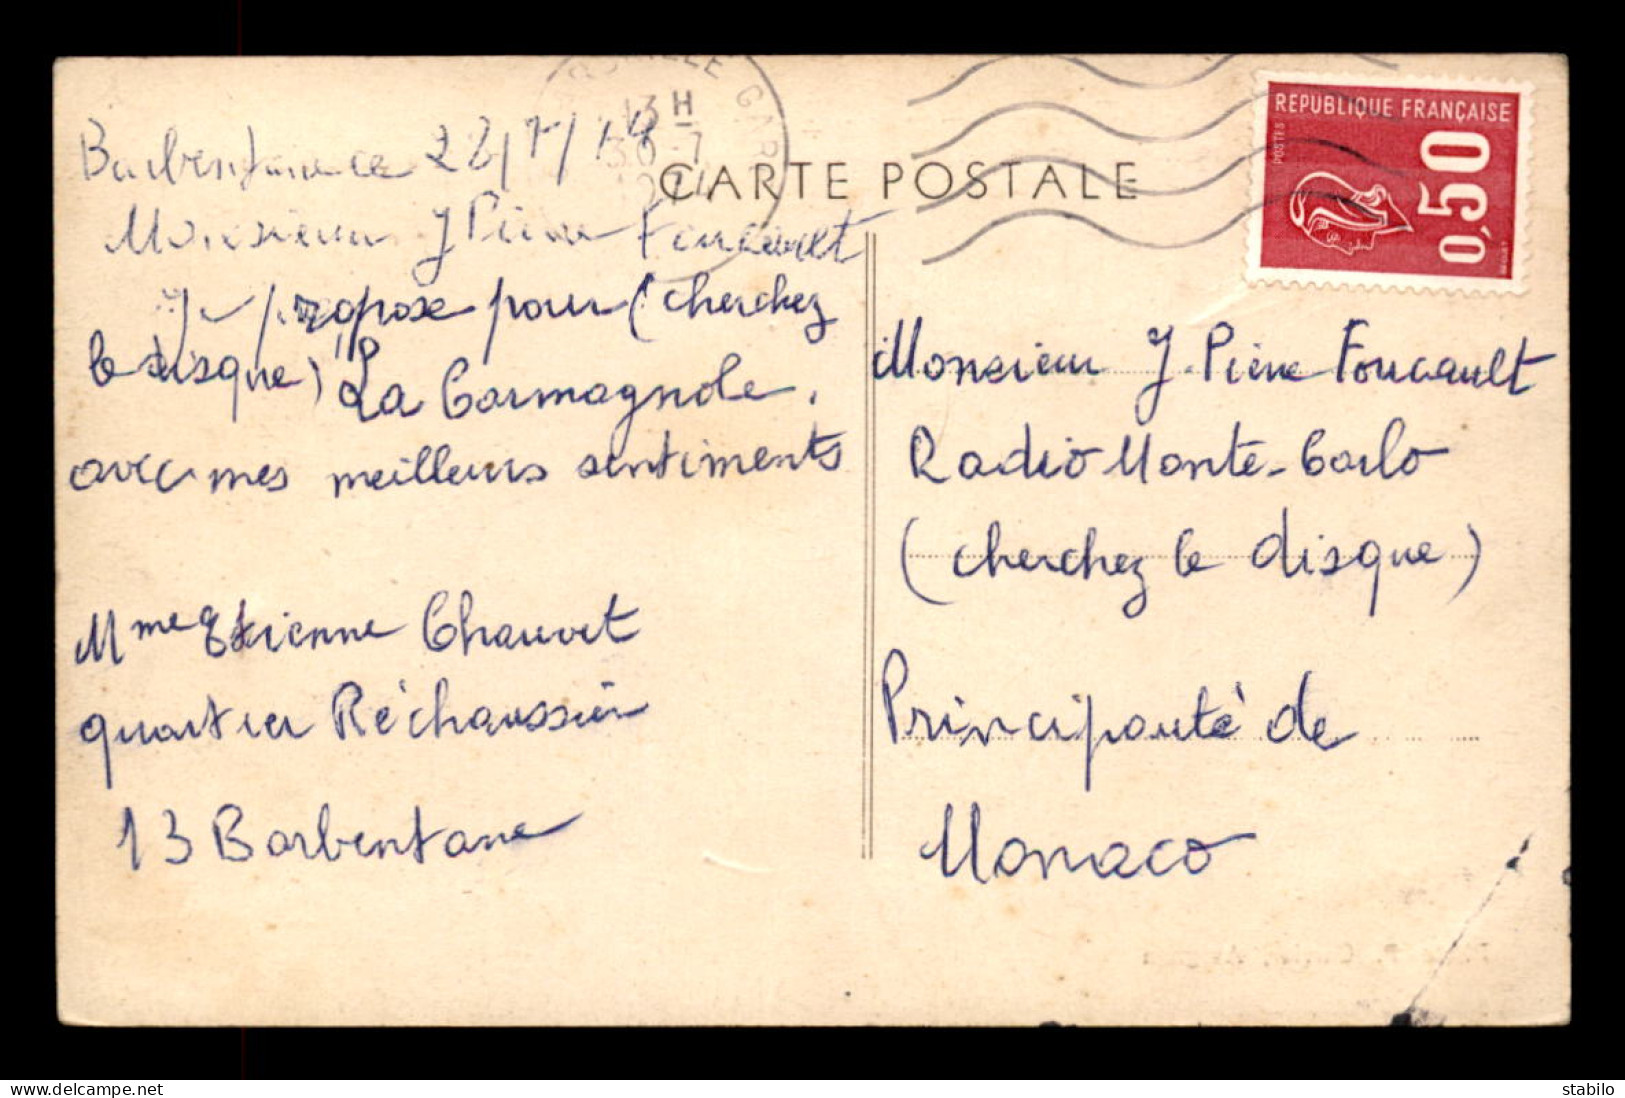 Barbentane 28/7/74
Monsieur J Pierre Foucault
Je propose pour (cherchez
le disque) "La Carmagnole.
avec mes meilleurs sentiments
Mme Etienne Chauvet
quartier Réchaussier
13 Barbentane
13H
30-7
GARD
CARTE POSTALE
REPUBLIQUE FRANÇAISE
POSTES
0,50
Monsieur J. Pierre Foucault
Radio Monte-Carlo
(cherchez le disque)
Principauté de
Monaco
delcampe.net
stabilo